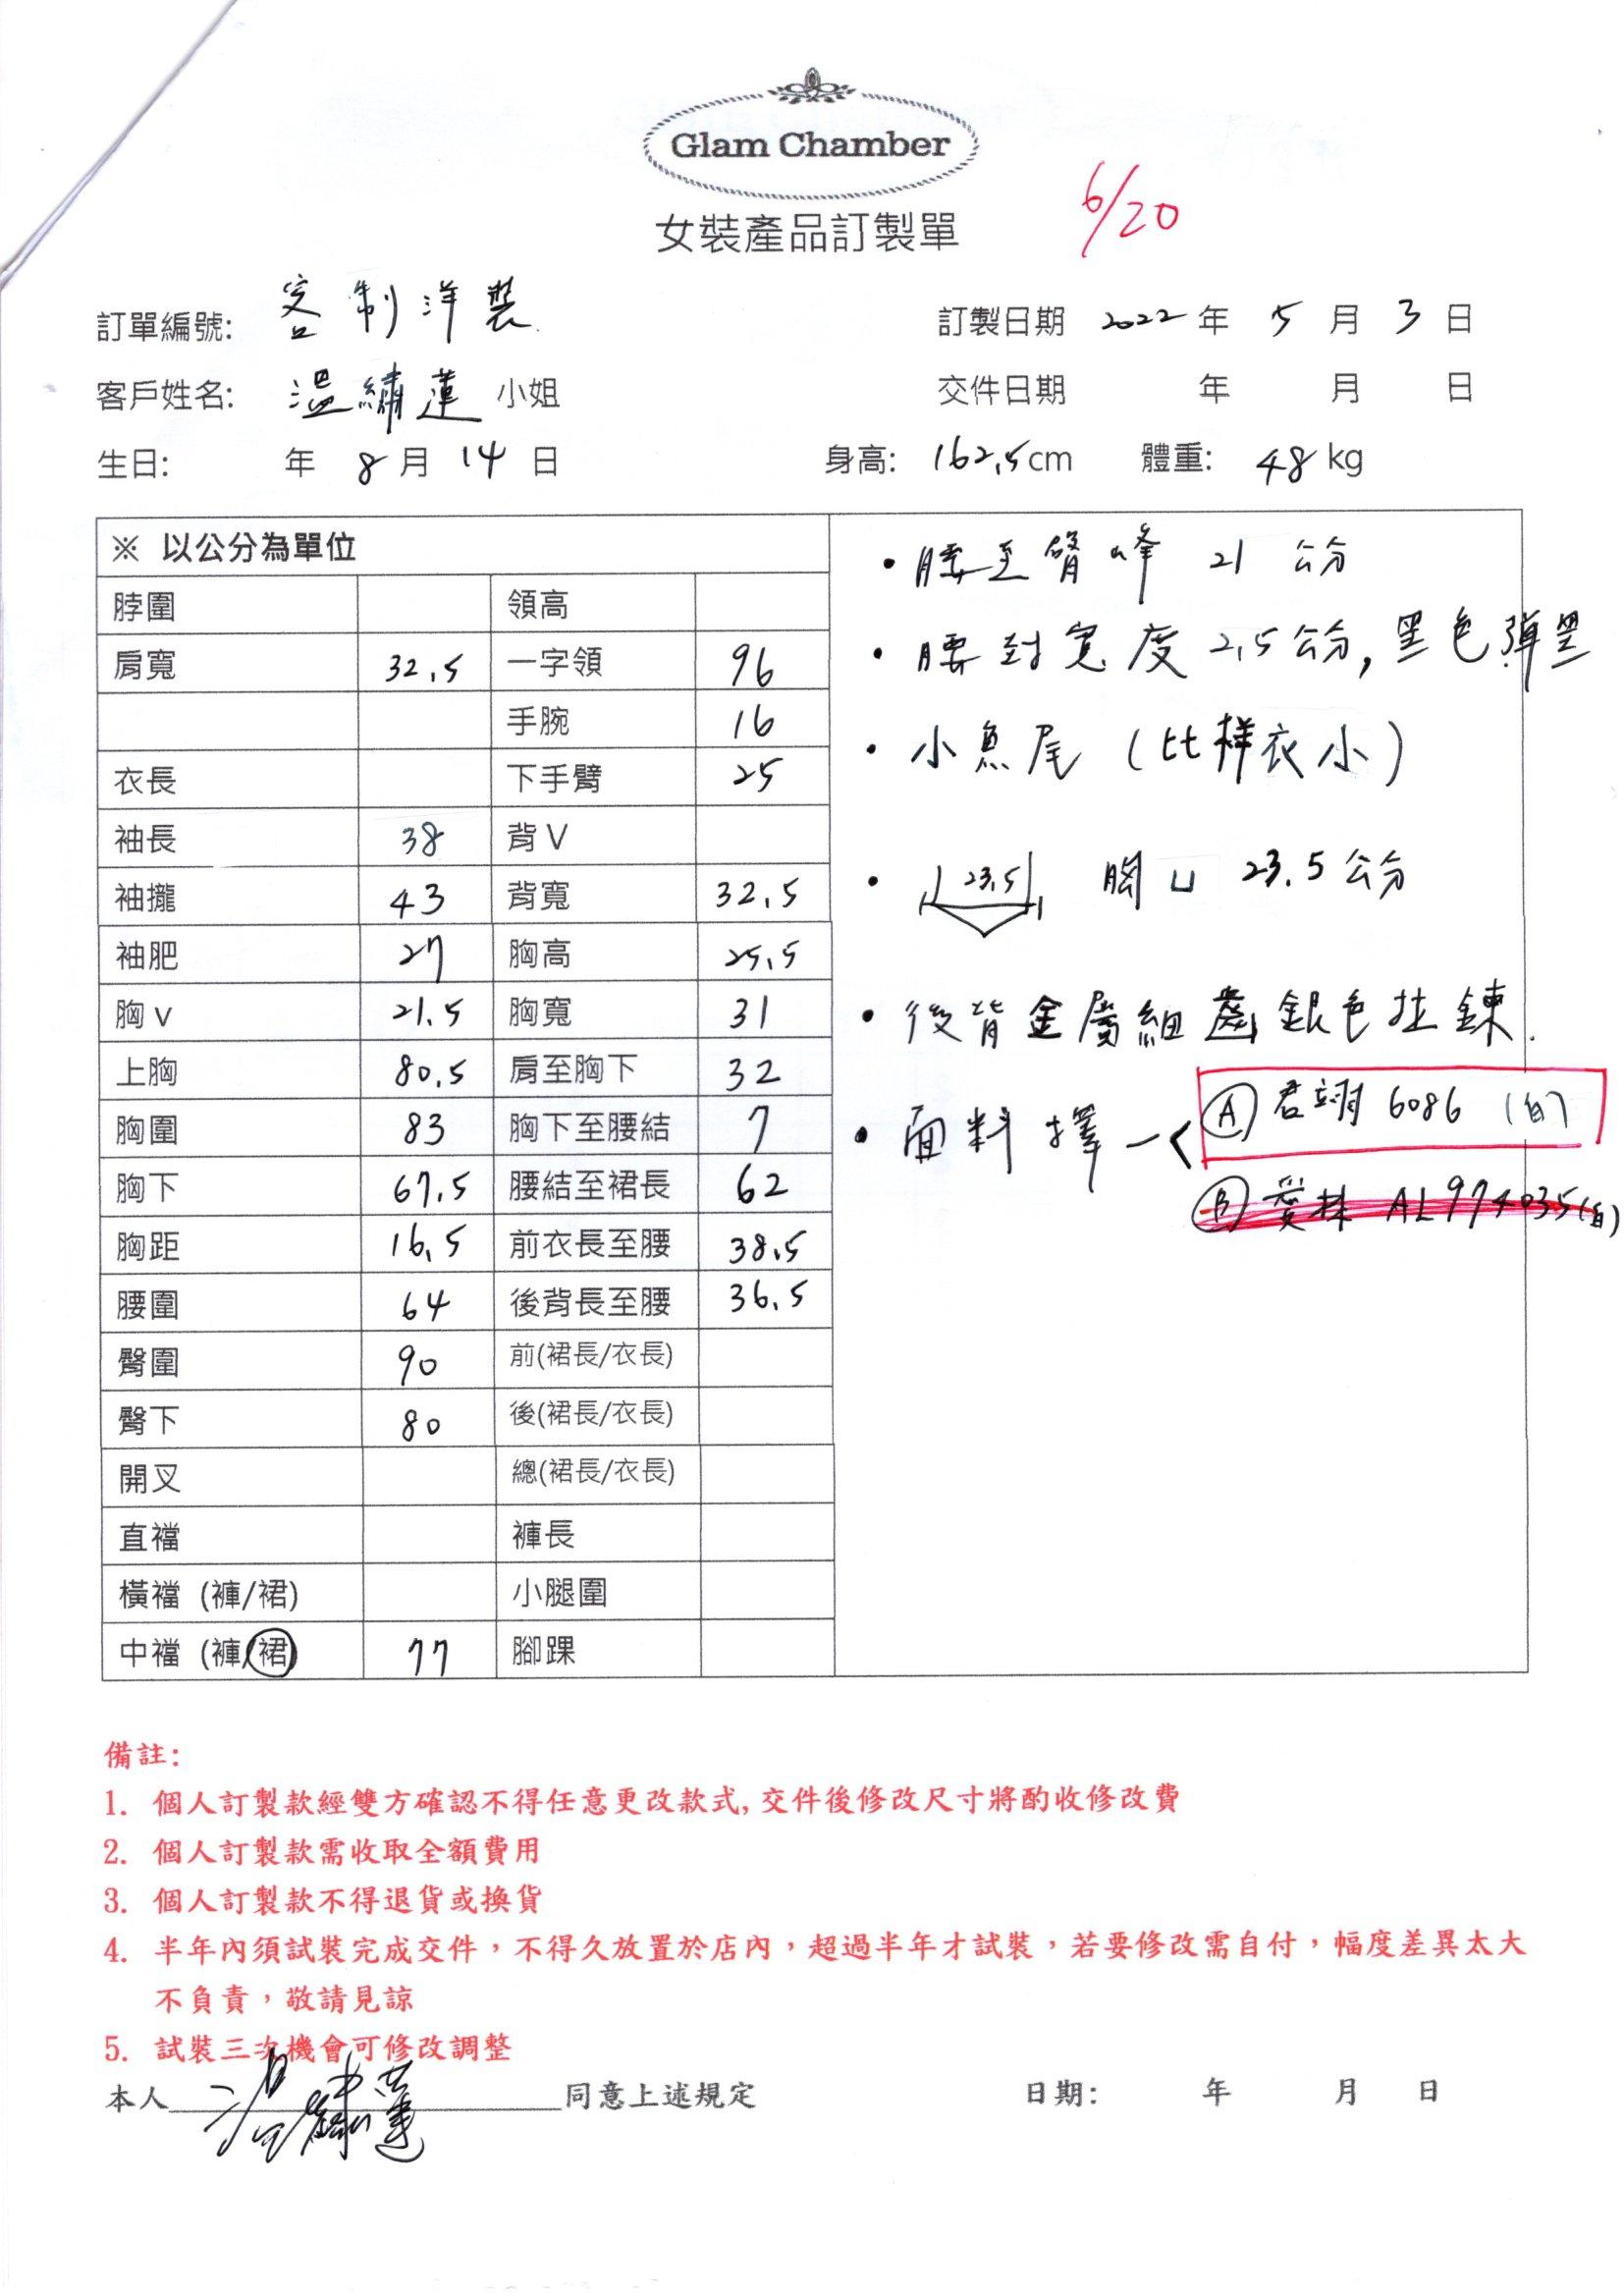 Glam Chamber
女裝產品訂製單
6/20
訂單編號: 客制洋裝
訂製日期 2022 年 5 月 3 日
客戶姓名: 溫繡蓮 小姐
交件日期 年 月 日
生日: 年 8 月 14 日 身高: 162.5 cm 體重: 48 kg
※ 以公分為單位
脖圍 領高
肩寬 32.5 一字領 96
手腕 16
衣長 下手臂 25
袖長 38 背 V
袖攏 43 背寬 32.5
袖肥 27 胸高 25.5
胸 v 21.5 胸寬 31
上胸 80.5 肩至胸下 32
胸圍 83 胸下至腰結 7
胸下 67.5 腰結至裙長 62
胸距 16.5 前衣長至腰 38.5
腰圍 64 後背長至腰 36.5
臀圍 90 前(裙長/衣長)
臀下 80 後(裙長/衣長)
開叉 總(裙長/衣長)
直襠 褲長
橫襠 (褲/裙) 小腿圍
中襠 (褲/裙) 77 腳踝
• 腰至臀峰 21 公分
• 腰封寬度 2.5 公分,黑色彈
• 小魚尾 (比样衣小)
• 23.5 胸口 23.5 公分
• 後背金屬細齒銀色拉鍊.
• 面料擇一 < Ⓐ 君翊 6086 (白)
Ⓑ 愛林 AL974035 (白)
備註:
1. 個人訂製款經雙方確認不得任意更改款式, 交件後修改尺寸將酌收修改費
2. 個人訂製款需收取全額費用
3. 個人訂製款不得退貨或換貨
4. 半年內須試裝完成交件，不得久放置於店內，超過半年才試裝，若要修改需自付，幅度差異太大
不負責，敬請見諒
5. 試裝三次機會可修改調整
本人 溫繡蓮 同意上述規定 日期: 年 月 日